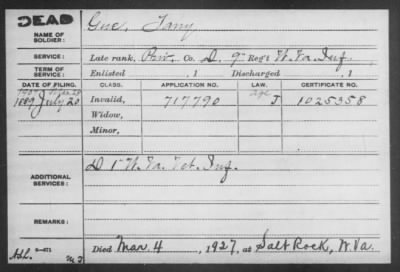 DEAD
NAME OF SOLDIER: Gue, Tany
SERVICE: Late rank, Priv. Co. D, 9" Reg't W. Va. Inf.
TERM OF SERVICE: Enlisted , 1 Discharged , 1
DATE OF FILING. CLASS. APPLICATION NO. LAW. CERTIFICATE NO.
Age
1889 July 20 Invalid, 717790 J 1025358
Widow,
Minor,
ADDITIONAL SERVICES: D 1" W. Va. Vet. Inf.
REMARKS:
Died Mar. 4, 1927, at Salt Rock, W. Va.